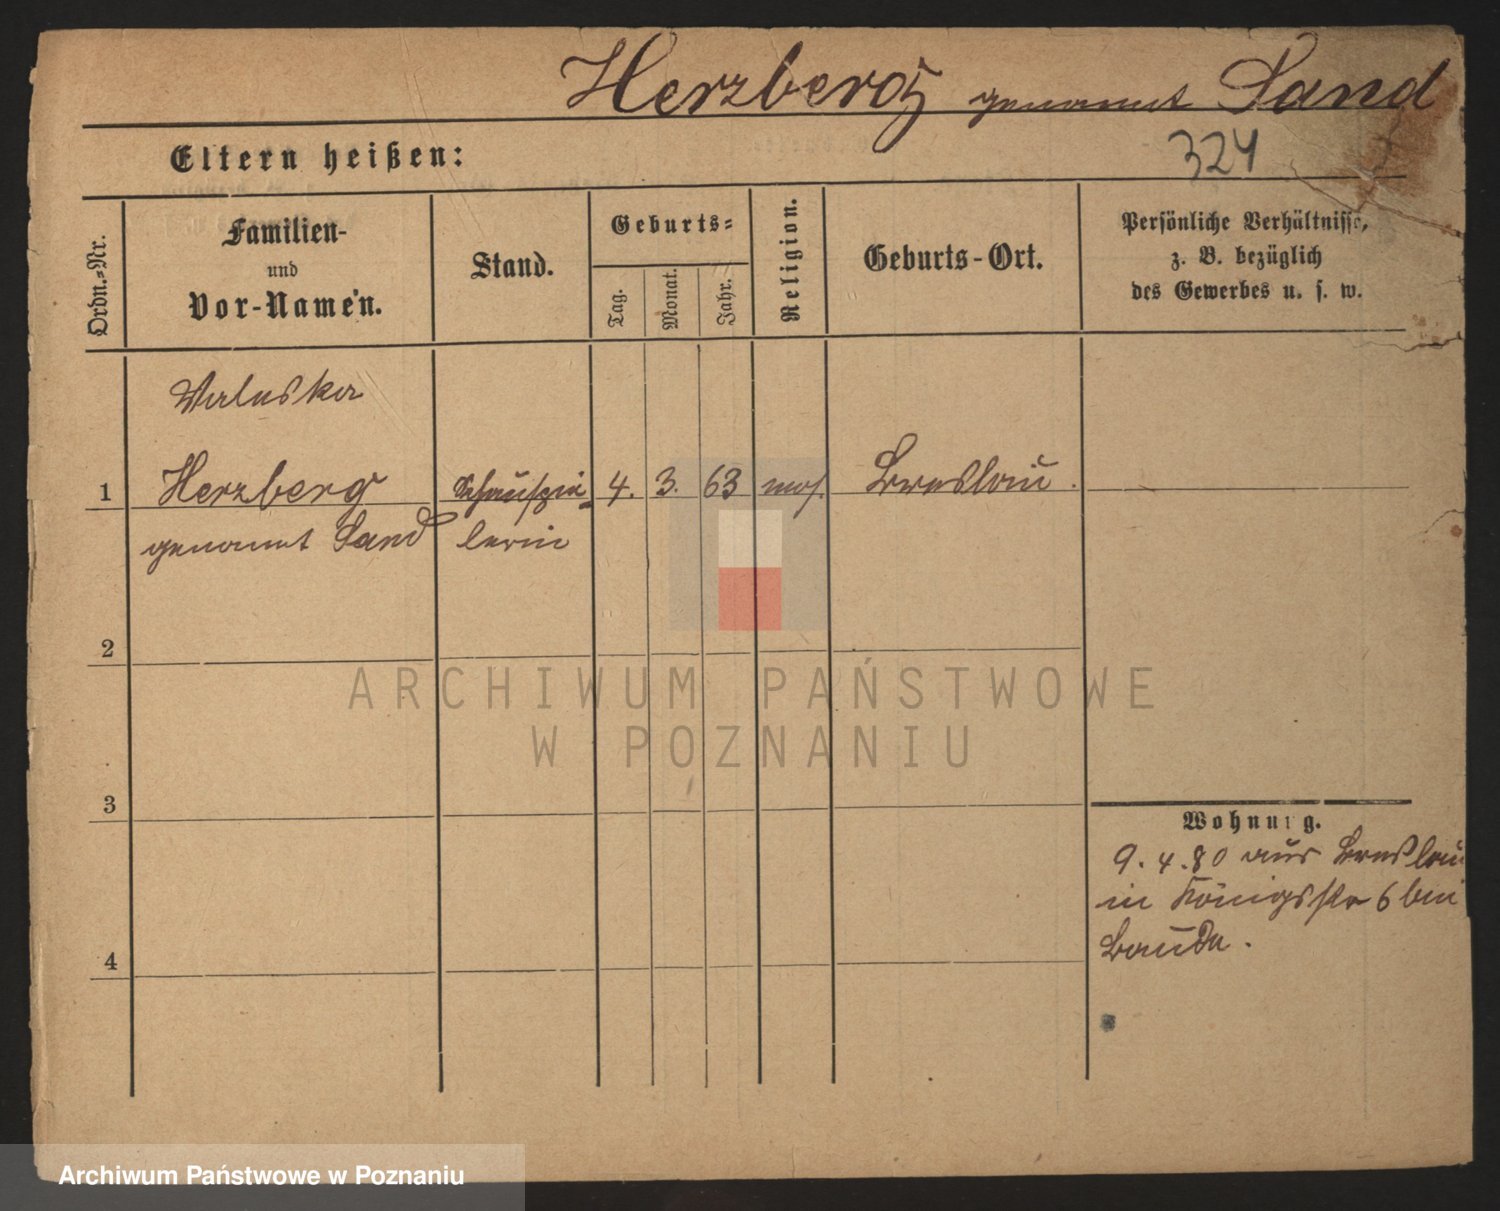 Herzberg genannt Sand
Eltern heißen:
324
Ordn.-Nr.
Familien-
und
Vor-Namen.
Stand.
Geburts-
Tag.
Monat.
Jahr.
Religion.
Geburts-Ort.
Persönliche Verhältnisse,
z. B. bezüglich
des Gewerbes u. s. w.
Valeska
1 Herzberg Schauspie- 4. 3. 63 mos. Breslau.
genannt Sand lerin
2
3
4
Wohnung.
9.4.80 aus Breslau
in Königsstr 6 bei
Baude.
ARCHIWUM PAŃSTWOWE
W POZNANIU
Archiwum Państwowe w Poznaniu